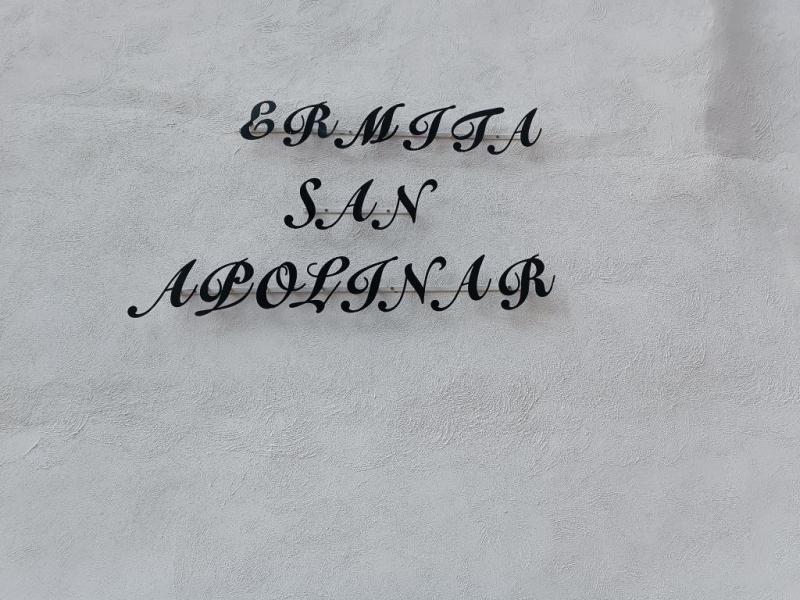 ERMITA
SAN
APOLINAR